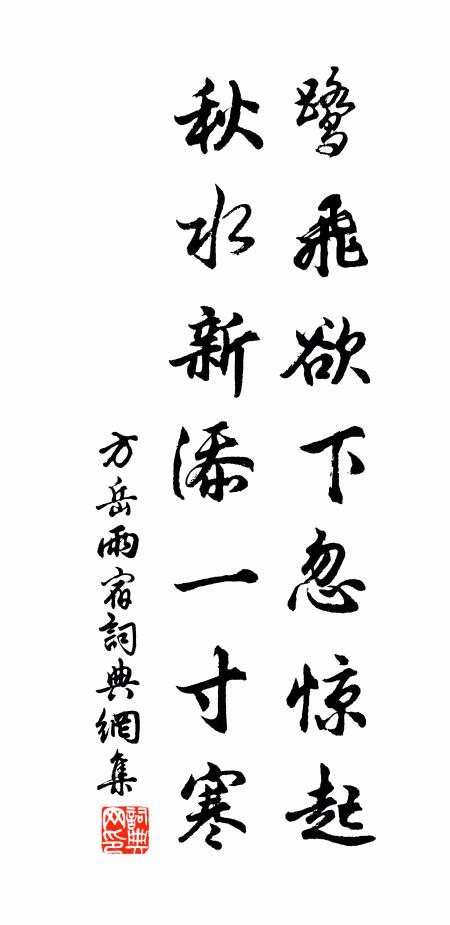 鹭飛欲下忽惊起
秋水新添一寸寒
方岳雨宿詞典網集
詞典网印